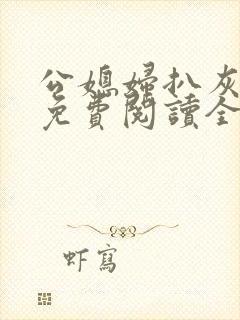 公媳婦扒灰
免費閱讀全
虾寫